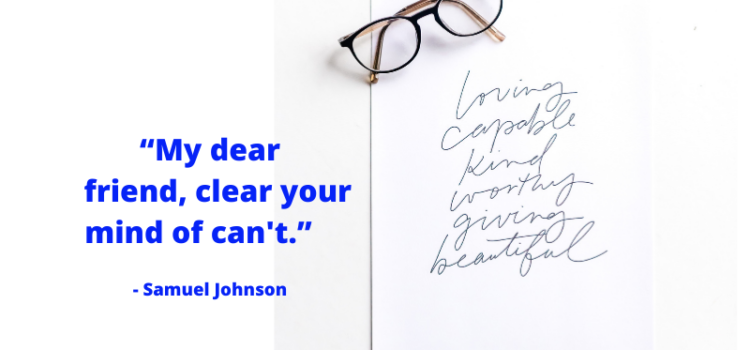 “My dear
friend, clear your
mind of can't.”
- Samuel Johnson
loving
capable
kind
worthy
giving
beautiful